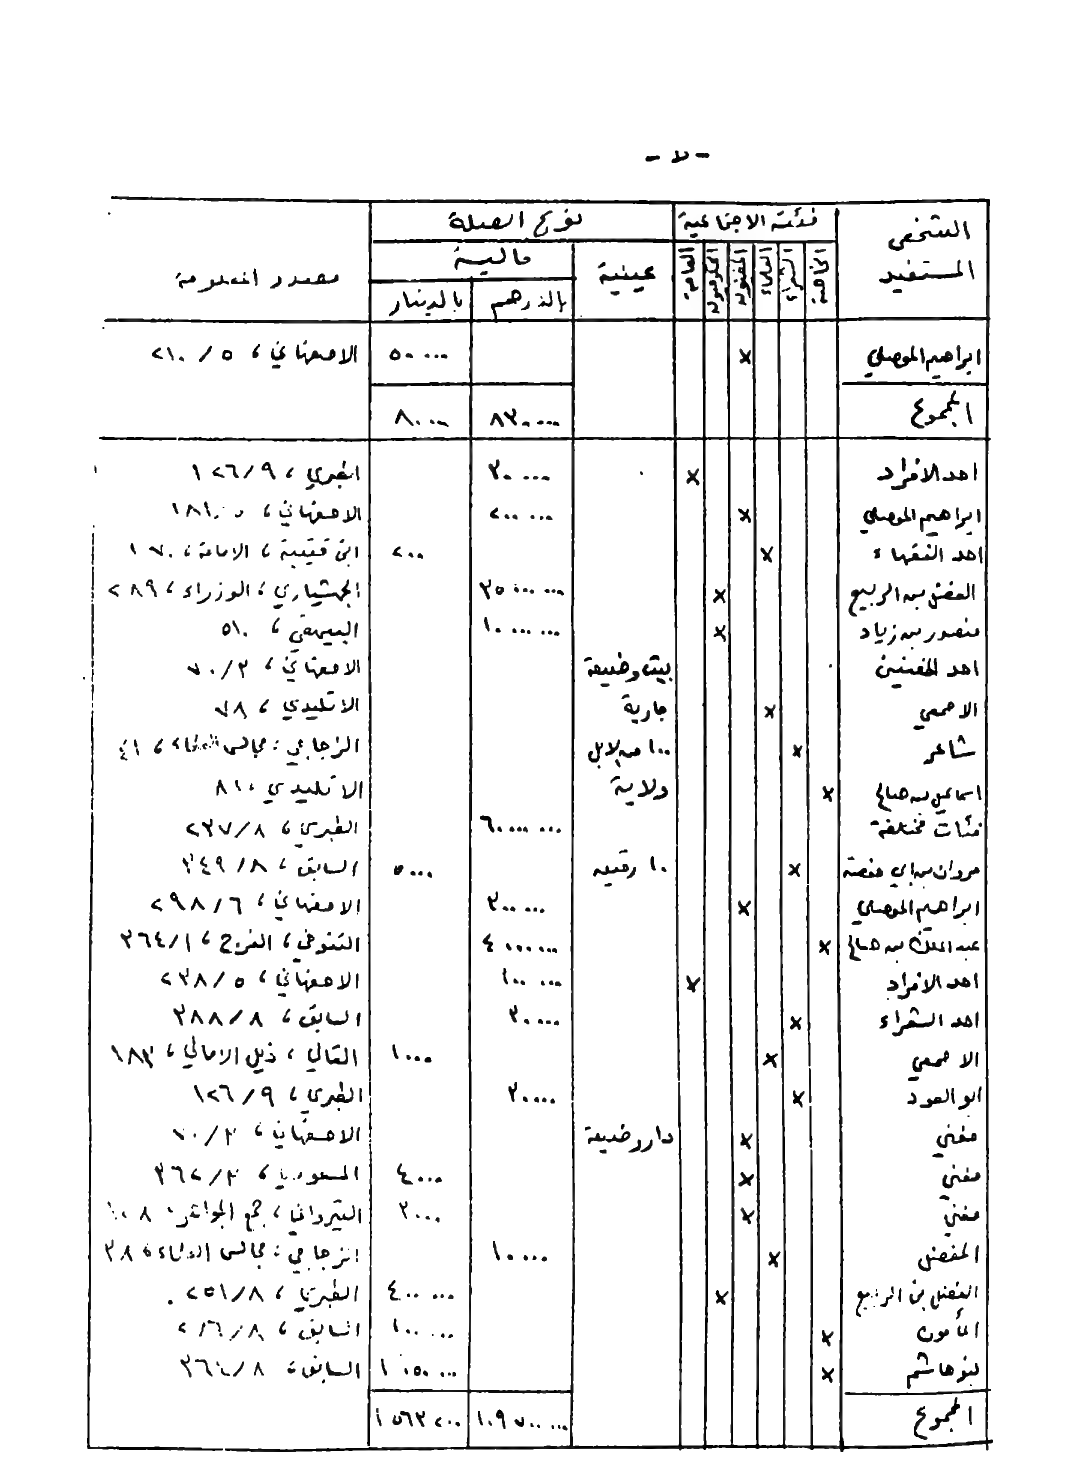 - ٧ -
الشخص المستفيد | فئته الاجتماعية | نوع الصلة | مصدر المعلومة
الخاصة | الشعراء | العلماء | المغنون | الحكوميون | العامة | عينية | مالية
بالدرهم | بالدينار
ابراهيم الموصلي | x | ٥٠٠٠٠ | الاصفهاني ، ٥/٢١٠
المجموع | ٨٣٠٠٠٠ | ٨٠٠٠٠
احد الافراد | x | ٣٠٠٠٠ | الطبري ، ٩/١٢٦
ابراهيم الموصلي | x | ٢٠٠٠٠٠ | الاصفهاني ،
احد الفقهاء | x | ٢٠٠ | ابن قتيبة ، الامامة ، ١٧٠
الفضل بن الربيع | x | ٣٥٠٠٠٠٠ | الجهشياري ، الوزراء ، ٢٨٩
منصور بن زياد | x | ١٠٠٠٠٠٠٠ | البيهقي ، ٥١٠
احد المغنين | بيت وضيعة | الاصفهاني ، ٣/٧٠
الاصمعي | x | جارية | الاتليدي ، ٧٨
شاعر | x | ١٠٠ من الابل | الزجاجي : مجالس العلماء ، ٤١
اسماعيل بن صالح | x | ولاية | الاتليدي ، ٨١
فئات مختلفة | ٦٠٠٠٠٠٠٠ | الطبري ، ٨/٢٣٧
مروان بن ابي حفصة | x | ١٠ رقيق | ٥٠٠٠ | السابق ، ٨/٣٤٩
ابراهيم الموصلي | x | ٣٠٠٠٠٠ | الاصفهاني ، ٦/٢٩٨
عبد الملك بن صالح | x | ٤٠٠٠٠٠٠ | التنوخي ، الفرج ، ١/٣٦٤
احد الافراد | x | ١٠٠٠٠٠ | الاصفهاني ، ٥/٢٣٨
احد الشعراء | x | ٣٠٠٠٠ | السابق ، ٨/٣٨٨
الاصمعي | x | ١٠٠٠ | القالي ، ذيل الامالي ، ١٨٣
ابو العود | x | ٣٠٠٠٠ | الطبري ، ٩/١٢٦
مغني | x | دار وضيعة | الاصفهاني ، ٣/٧٠
مغني | x | ٤٠٠٠ | المسعودي ، ٣/٣٦٧
مغني | x | ٣٠٠٠ | القيرواني ، جمع الجواهر
المفضل | x | ١٠٠٠٠ | الزجاجي : مجالس العلماء ،
الفضل بن الربيع | x | ٤٠٠٠٠٠ | الطبري ، ٨/٢٥١ .
المأمون | x | ١٠٠٠٠٠ | السابق ،
بنو هاشم | x | ١٠٥٠٠٠٠ | السابق ، ٨/٣٦٤
المجموع | ١٠٩٧٠٠٠٠٠ | ١٥٦٣٢٠٠